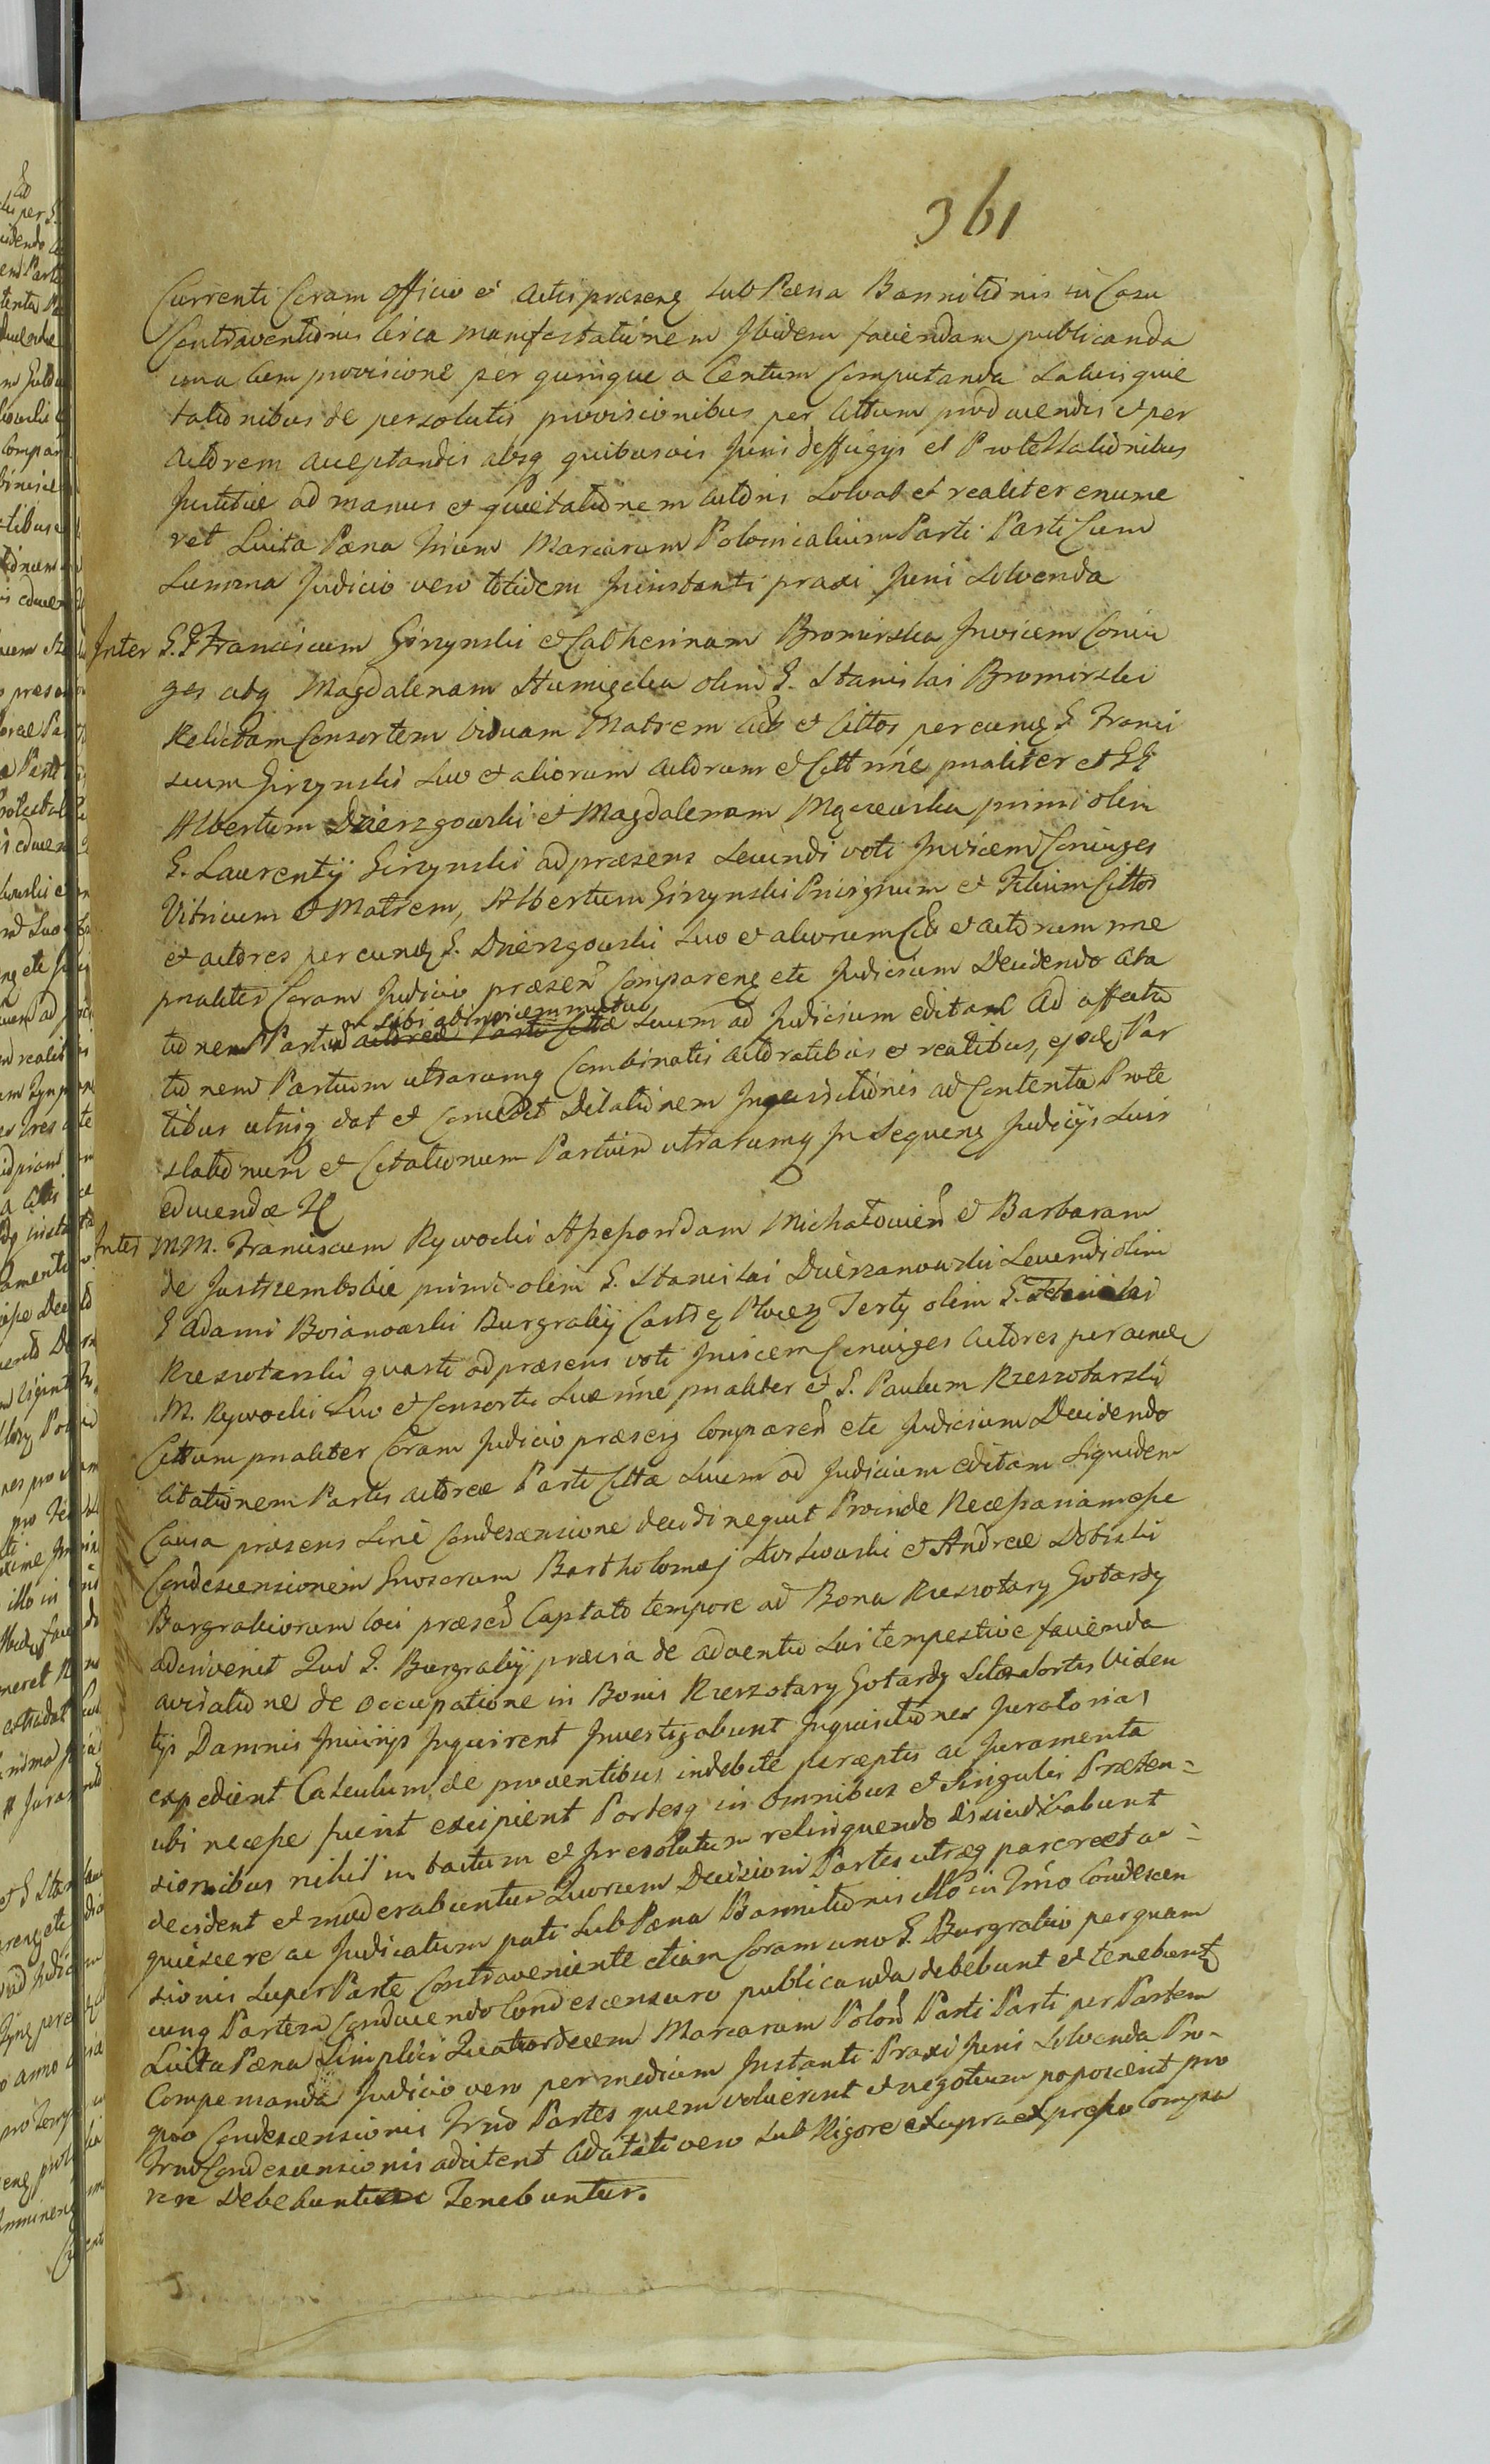 361
Currenti Coram Officio et Actis præsenq sub Pæna Bannitionis in Casu
Contraventionis circa manifestationem Ibidem faciendam publicanda
una cum provisione per quinque a Centum Computanda Salvis quie
tationibus de persolutis provisionibus per Citum producendis et per
Actorem acceptandis absq quibusvis Juris deffugys et Protestationibus
Justitiæ ad manus et quietationem Actoris Solvat et realiter enume
ret Luita Pæna trium Marcarum Polonicalium Parti Parti Cum
Summa Judicio vero totidem Ininstanti praxi Juri Solvenda
Inter G.G Franciscum Girzynski et Catherinam Bromirska Invicem Coniu
ges atq Magdalenam Humięcka olim G. Stanislai Bromirski
Relictam Consortem viduam Matrem Act et Cittos per eundq G. Franci
scum Girzynski suo et aliorum Actorum et Citt nñe pnaliter et GG
Albertum Dzierzgowski et Magdalenam Mączewska primi olim
G. Laurentÿ Girzynski ad præsens Secundi voti Invicem Coniuges
Vitricum et Matrem, Albertum Girzynski Privignum et Filium Cittos
et Actores per eundq G. Dzierzgowski suo et aliorum Citt et Actorum nne
pnaliter Coram Judicio præsen Comparenq etc Judicium Decidendo Cita
tionem Partium sibi abinvicem mutuo Suum ad Judicium editam Ad affecta
tionem Partium utrarumq Combinatis Actoratibus et reatibus, ejsdq Par
tibus utrisq dat et Concedit Dilationem Inquisitionis ad Contenta Prote
stationum et Citationum Partium utrarumq In Sequenq Judicÿs Suis
educendæ
Inter MM. Franciscum Rywocki Thesaurar Michałowien et Barbaram
de Jastrzembskie primi olim G. Stanislai Dzierzanowski Secundi olim
G Adami Boianowski Burgrabÿ Castr Płocq Tertÿ olim G.
Rzeszotarski quarti ad præsens voti Invicem Coniuges Actores per eundq
M. Rywocki Suo et Consortis Suæ nñe pnaliter et G. Paulum Rzeszotarski
Cittum pnaliter Coram Judicio præsenq Comparen etc Judicium Decidendo
Citationem Partis Actoreæ Parti Cittæ Suum ad Judicium editam Siquidem
Causa præsens Sine Condescensione decidi nequit Proinde Necessariam esse
Condescensionem Gnosorum Bartholomæj et Andreæ Dobrski
Burgrabiorum loci præsen Captato tempore ad Bona Rzeszotary Gotardy
adinvenit Qui G. Burgrabÿ præcia de adventu Sui tempestive facienda
avisatione de occupatione in Bonis Rzeszotary Gotardy Sitæ Sortis Violen
tÿs Damnis Iniurÿs Inquirent Investigabunt Inquisitiones Juratorias
expedient Calculum de proventibus indebite perceptis ac Juramenta
ubi necesse fuerit excipient Partesq in omnibus et Singulis Præten=
sionibus nihil in tactum et Irresolutum relinquendo disiudicabunt
decident et moderabuntur Quorum Decisioni Partes utræq parere et ac=
quiescere ac Judicatum pati Sub Pæna Bannitionis illo in Trno Condescen
sionis Super Parte Contraveniente etiam Coram uno G. Burgrabio per quam
cunq Partem Conducendo Condescensuro publicanda debebunt et tenebunt
Luita Pæna Simplici Quatuordecem Marcarum Polon Parti Parti per Partem
Compensanda Judicio vero per medium Instanti Praxi Juri Solvenda Pro-
quo Condescensionis Trno Partes quem voluerint et negotium poposcerit pro
Trno Condescensionis adcitent Adcitati vero Sub Rigore Supra expresso Compa
rere Debebunt ac Tenebuntur.